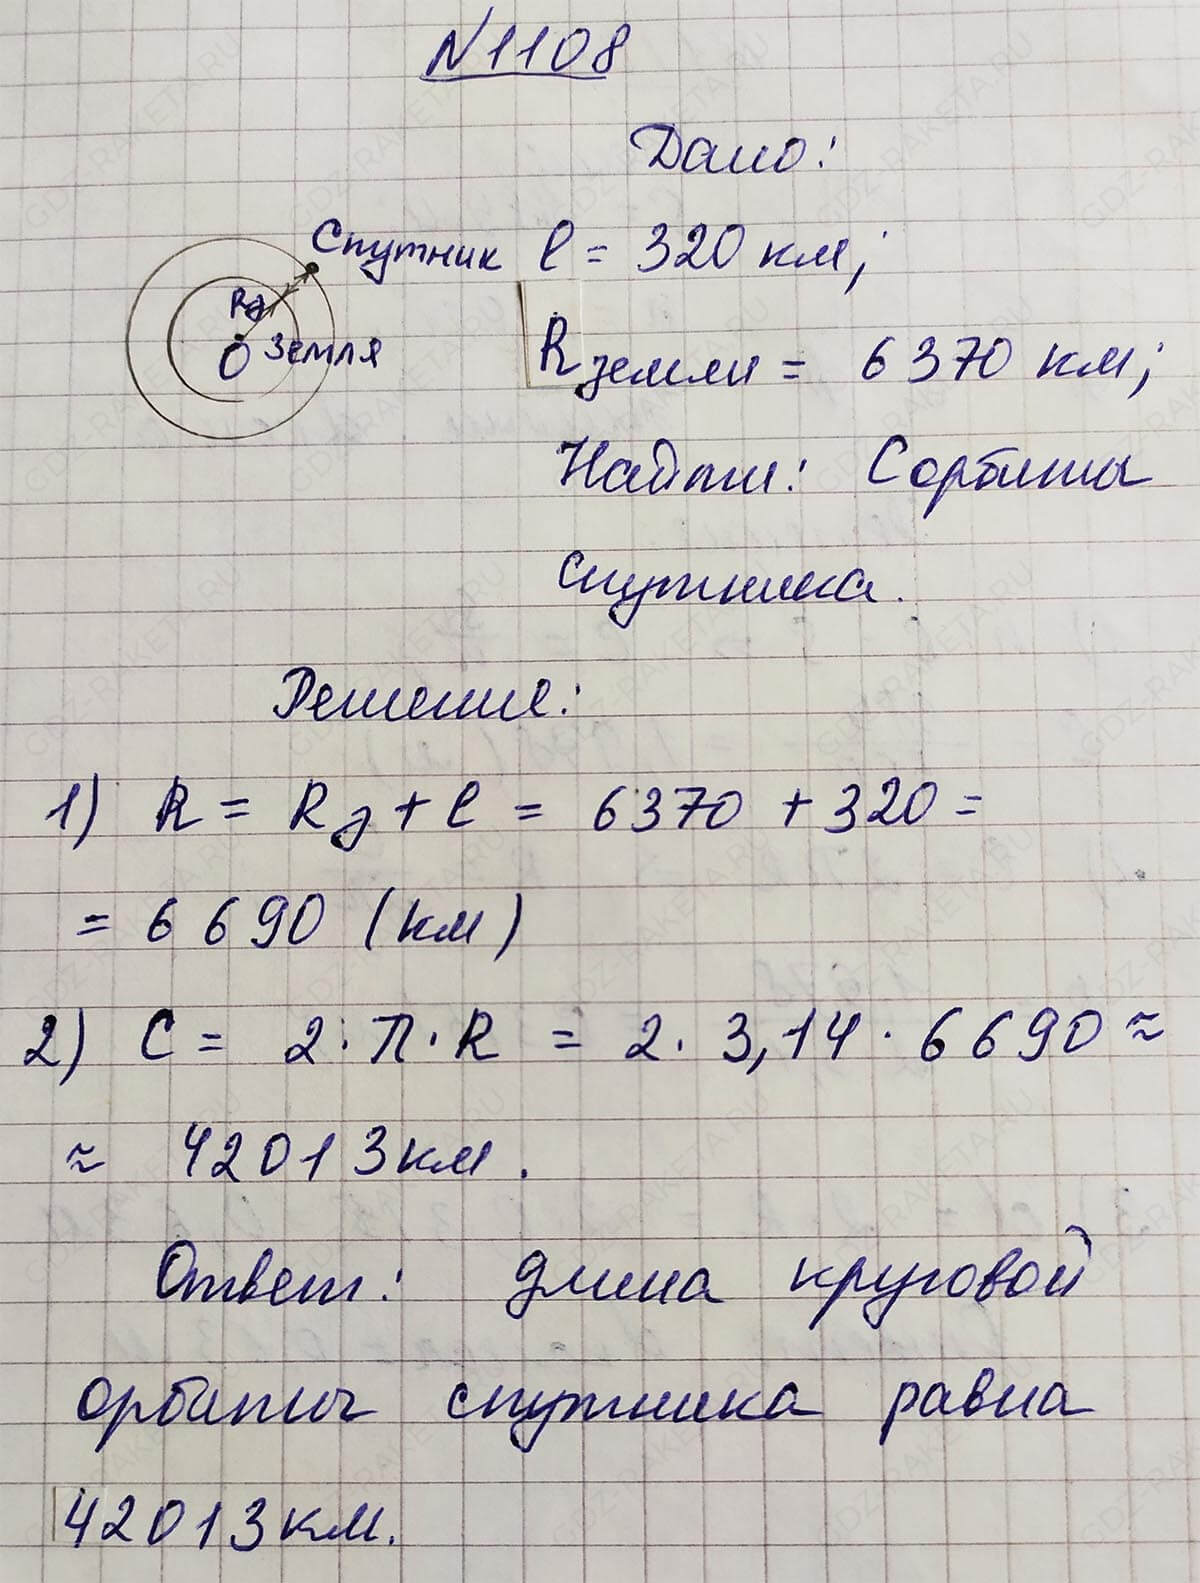 N1108
Дано:
Спутник l = 320 км;
Rз
О Земля
Rземли = 6370 км;
Найти: Cорбиты
спутника.
Решение:
1) R = Rз + l = 6370 + 320 =
= 6690 (км)
2) C = 2·π·R = 2·3,14·6690 ≈
≈ 42013 км.
Ответ: длина круговой
орбиты спутника равна
42013 км.